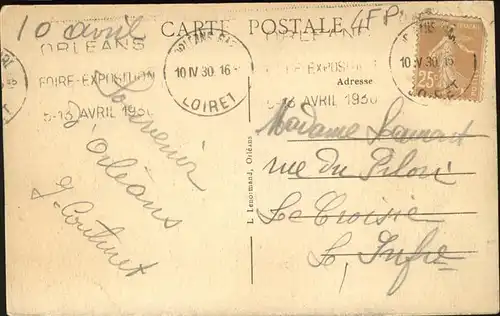 10 avril
CARTE POSTALE
4FP
ORLÉANS
FOIRE-EXPOSITION
5-13 AVRIL 1930
ORLÉANS GARE
10 IV 30 16
LOIRET
ORLÉANS
FOIRE-EXPOSITION
5-13 AVRIL 1930
10 IV 30 16
25c
Adresse
Souvenir
d'Orléans
L. Lenormand, Orléans
Madame
rue du Pilori
Le Croisic
L. Infre